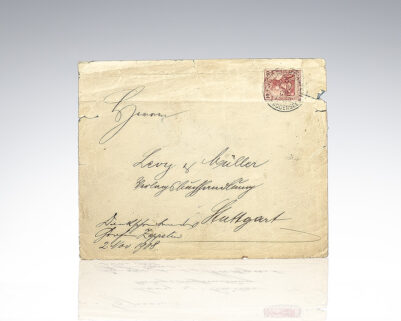 Herrn
Levy & Müller
Verlagsbuchhandlung
Stuttgart
Dankschreiben d
Grafen Zeppelin
2 Nov 1908.